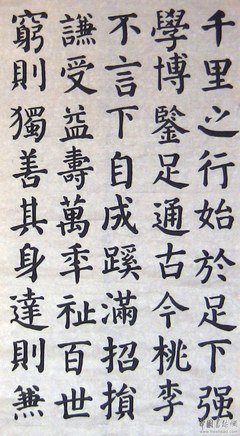 千里之行始於足下强
學博鑒足通古今桃李
不言下自成蹊滿招損
謙受益壽萬年祉百世
窮則獨善其身達則兼